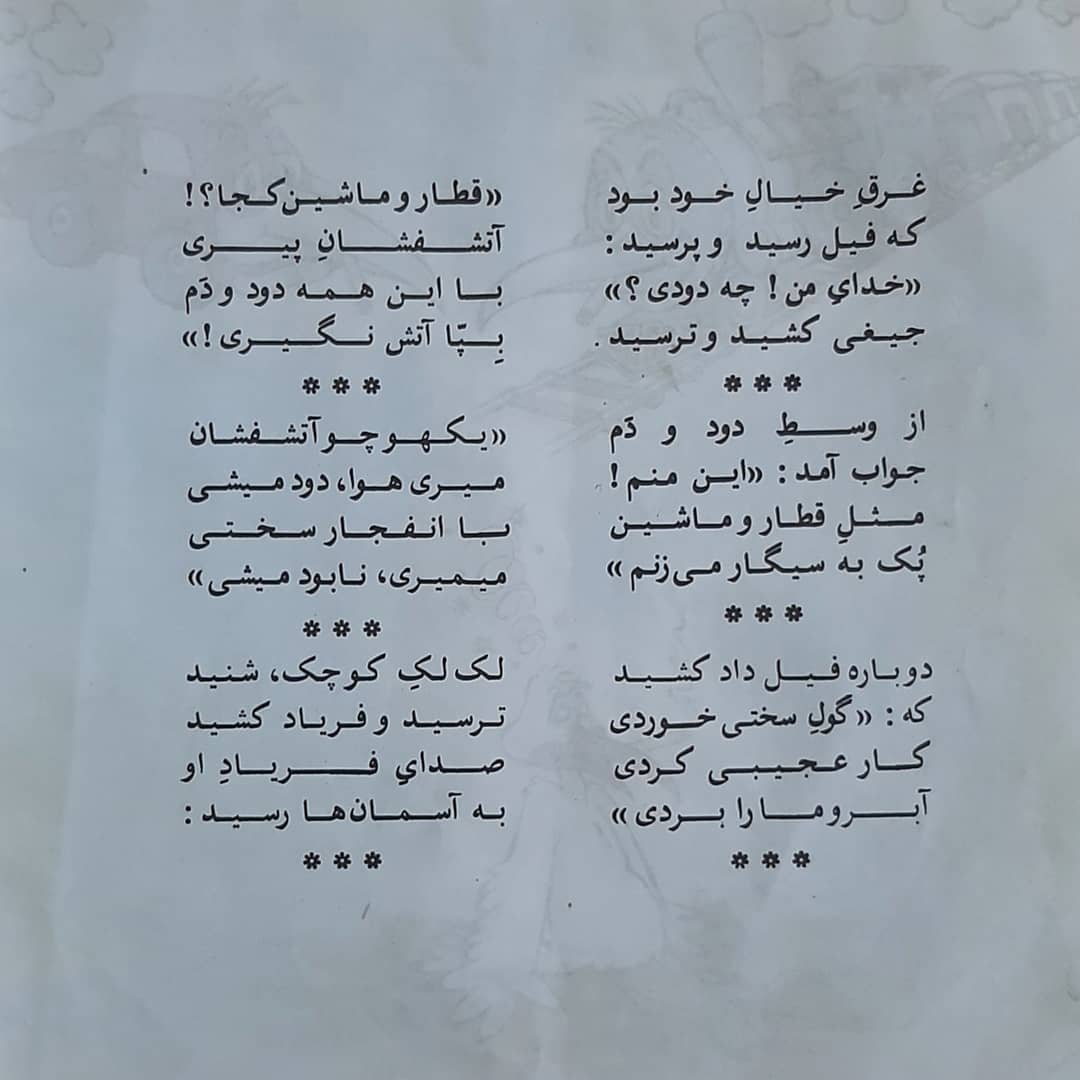 غرقِ خیالِ خود بود
که فیل رسید و پرسید :
«خدایِ من ! چه دودی ؟»
جیغی کشید و ترسید .
***
از وسطِ دود و دَم
جواب آمد : «این منم !
مثلِ قطار و ماشین
پُک به سیگار می‌زنم »
***
دوباره فیل داد کشید
که : «گولِ سختی خوردی
کار عجیبی کردی
آبرو ما را بردی »
***
«قطار و ماشین کجا؟ !
آتشفشانِ پیری
با این همه دود و دَم
بِپّا آتش نگیری !»
***
«یکهو چو آتشفشان
میری هوا، دود میشی
با انفجار سختی
میمیری، نابود میشی»
***
لک لکِ کوچک، شنید
ترسید و فریاد کشید
صدایِ فریادِ او
به آسمان‌ها رسید :
***